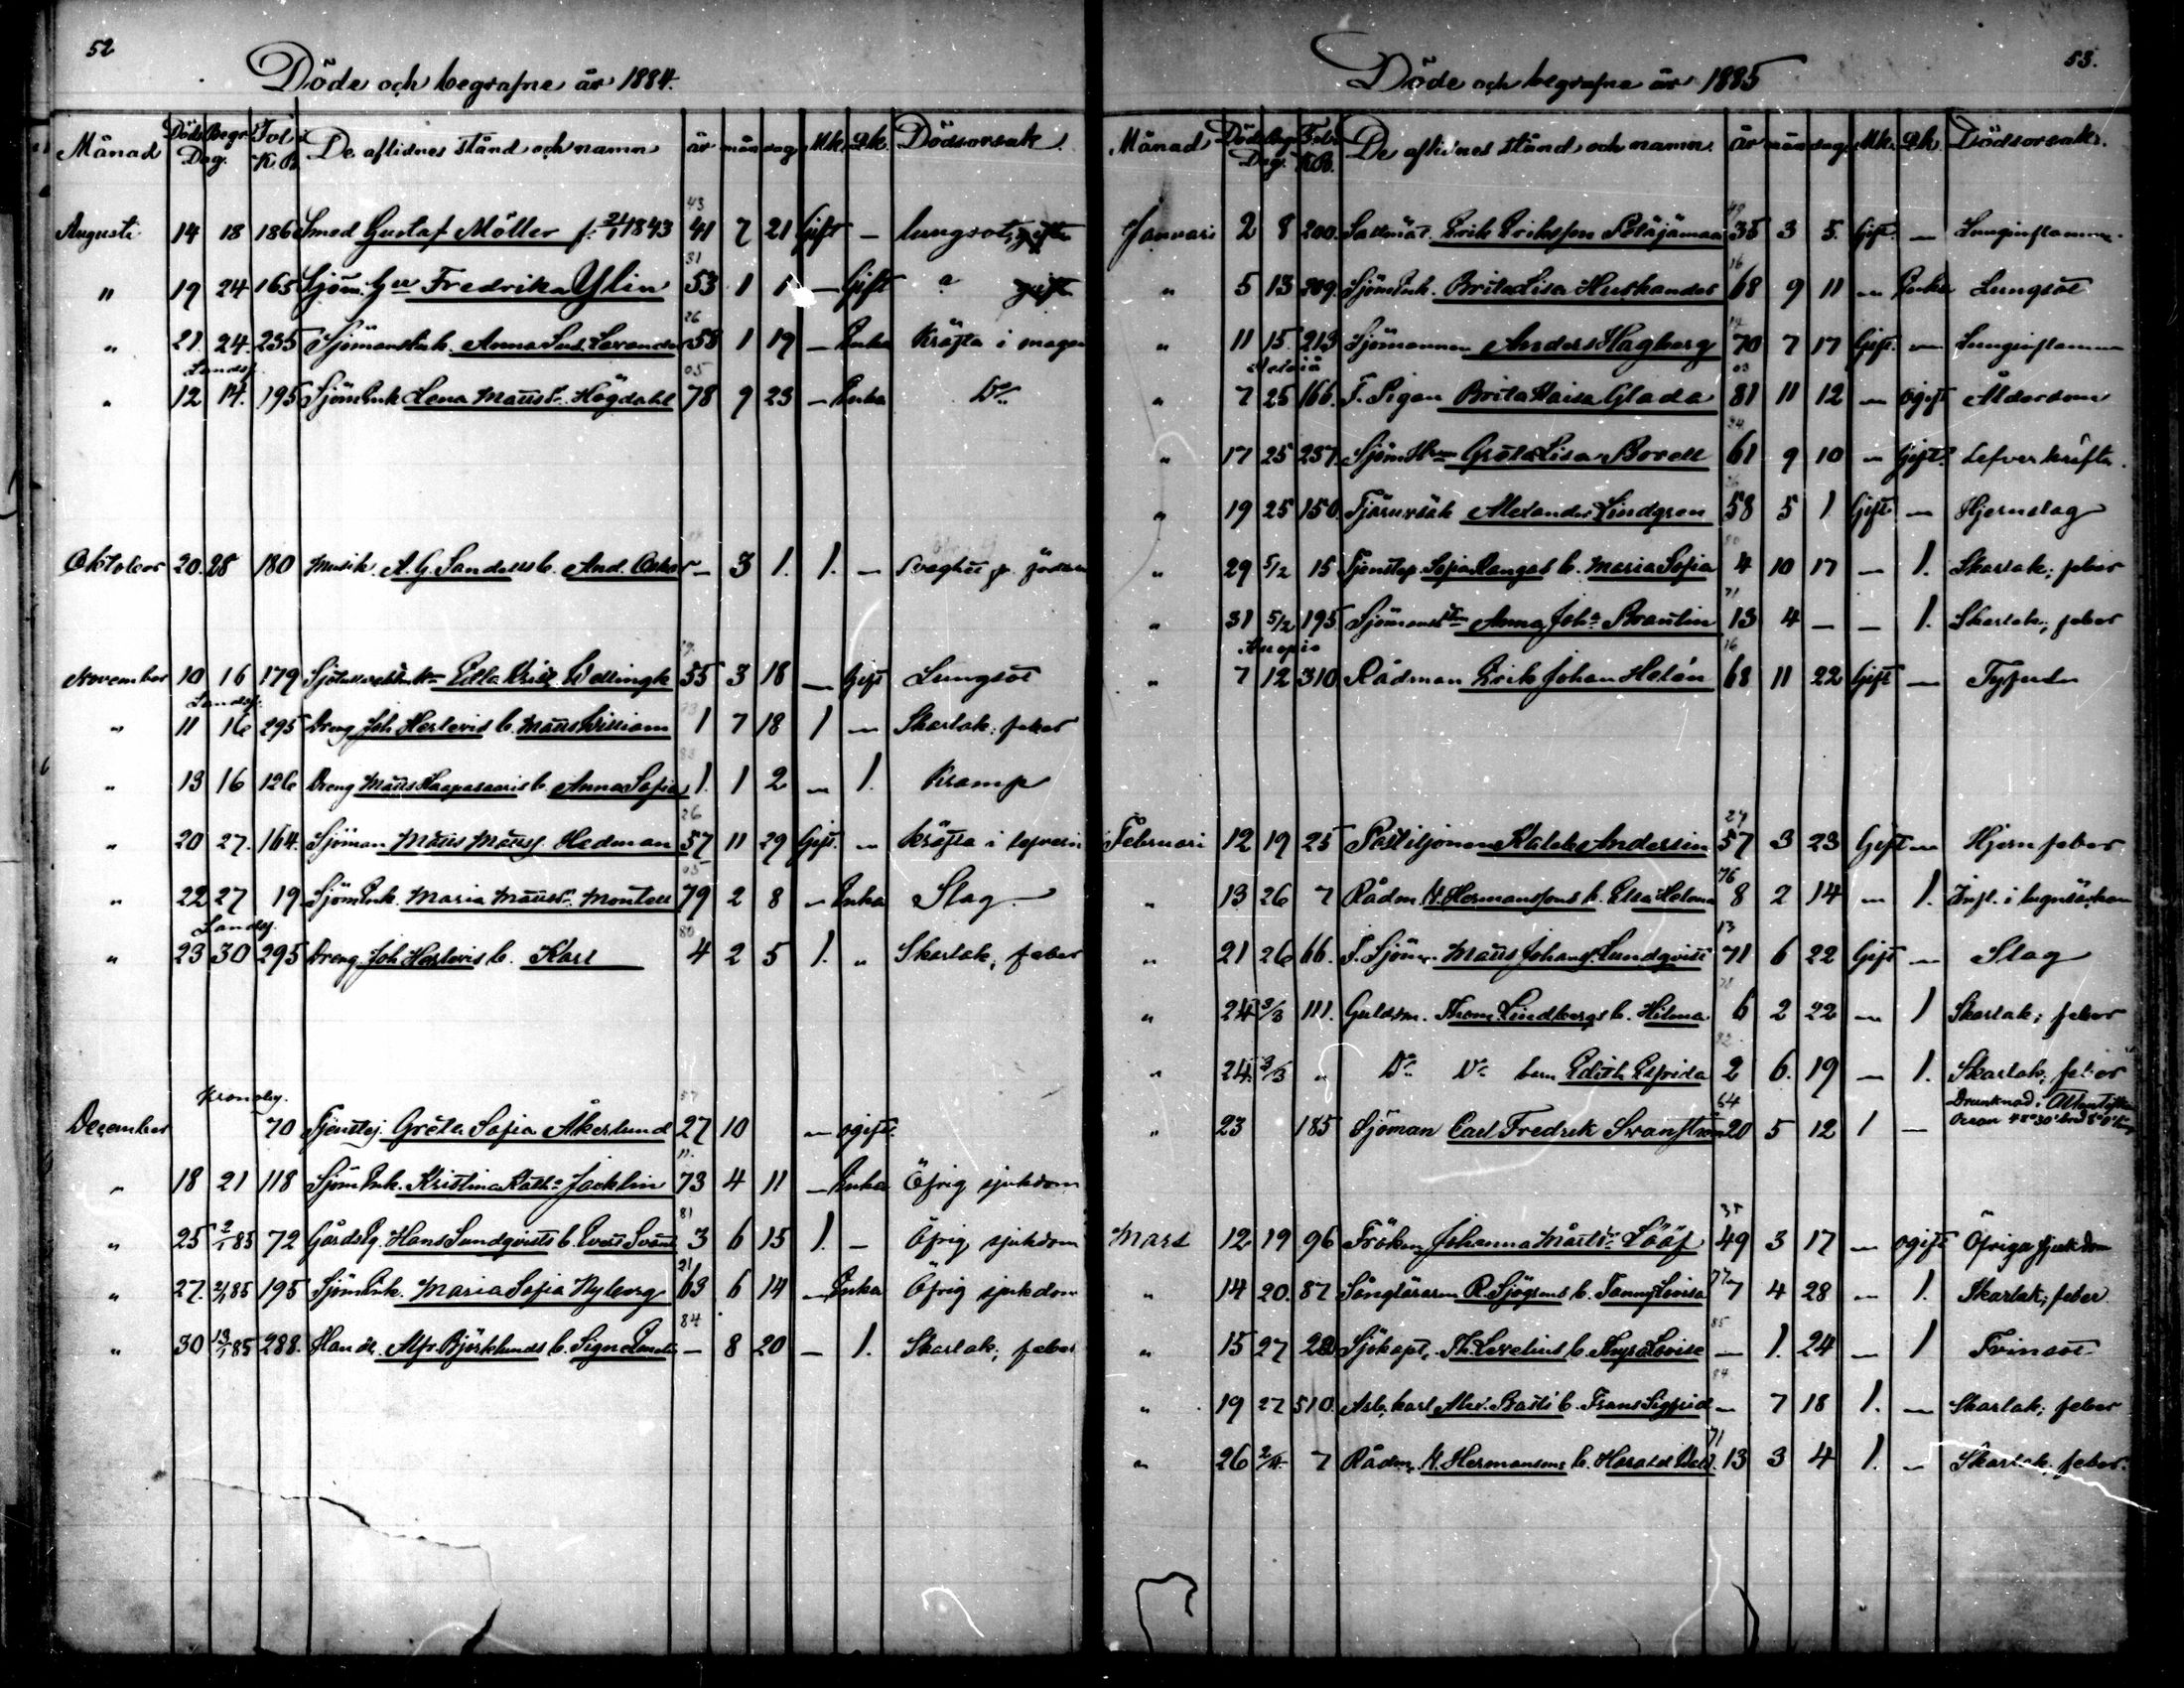 52
Döde och begrafne år 1884.
Månad Döds Begr. Fol. i De aflidnes stånd och namn år mån dag Mk. Qk. Dödsorsak.
Dag. K.B.
43
Augusti 14 18 186 Smed Gustaf Möller f. 24/1 1843 41 7 21 Gift — lungsot
31
" 19 24 165 Sjöm. Fredrika Ylin 53 1 1 — Gift "
26
" 21 24. 235 Sjömansenk. Anna 58 1 19 — Enka Kräfta i magen
Landsf. 05
" 12 14. 195 Sjömenk Lena Mattsdr. Högdahl 78 9 23 — Enka Do
Oktober 20. 28 180 Musik. A. G. Sandells b. And. Oskar — 3 1. 1. — Svaghet fr. födseln
November 10 16 179 Edla Wellingk 55 3 18 — Gift Lungsot
Landsf.
" 11 16 295 Dreng Joh Herlevis b. Matts William 1 7 18 1 — Skarlak. feber
83
" 13 16 126 Dreng Matts Haapasaaris b. Anna Sofia 1. 1 2 — 1. Kramp
26
" 20 27. 164. Sjöman Matts Mattsf. Hedman 57 11 29 Gift. — Kräfta i lefvern
05
" 22 27 19 Sjömenk. Maria Mattsdr. Montell 79 2 8 — Enka Slag
Landsf. 80
" 23 30 295 Dreng Joh Herlevis b. Karl 4 2 5 1. " Skarlak. feber
Kronoby. 57
December 70 Tjenstej. Greta Sofia Åkerlund 27 10 — ogift.
11.
" 18 21 118 Sjömenk. Kristina Jacklin 73 4 11 — Enka Öfrig sjukdom
81
" 25 2/1 85 72 Gårdseg. Hans Sundqvists b. 3 6 15 1. — Öfrig sjukdom
21
" 27. 2/1 85 195 Sjömenk. Maria Sofia Nyberg 63 6 14 — Enka Öfrig sjukdom
84
" 30 13/1 85 288. Handl. Alfr. Björklunds b. Signe — 8 20 — 1. Skarlak. feber
53.
Döde och begrafne år 1885
Månad Döds begr Fol. i De aflidnes stånd och namn. år mån dag Mk. Qk. Dödsorsak.
Dag. K.B.
49
Januari 2 8 200. Erik Eriksson Pöläjämaa 35 3 5. Gift. — Lunginflamm.
16
" 5 13 209. Sjömenk. Brita Lisa Huskander 68 9 11 — Enka Lungsot
14
" 11 15. 213 Sjömannen Anders Hagberg 70 7 17 Gift. — Lunginflamm
03
" 7 25 166. F. Pigan Brita Maisa Glada 81 11 12 — ogift Ålderdom
24
" 17 25 237. Greta Lisa Borell 61 9 10 — Gift. Lefverkräfta.
26
" 19 25 150. Alexander Lindgren 58 5 1 Gift — Hjernslag
80
" 29 5/2 15 Tjenstep. Sofia Kangas b. Maria Sofia 4 10 17 — 1. Skarlak. feber
71
" 31 5/2 195 Anna Joha Brautin 13 4 — — 1. Skarlak. feber
Kuopio 16
" 7 12 310 Rådman Erik Johan Helén 68 11 22 Gift —
27
Februari 12 19 25 Postiljonen Andersin 57 3 23 Gift — Hjernfeber
76
" 13 26 7 Rådm. N. Hermanssons b. Elsa Helena 8 2 14 — 1.
13
" 21 26 66. F. Sjöm. Matts Johansf. Sundqvist 71 6 22 Gift — Slag
78
" 24 3/3 111. Guldsm. Thom. Lindbergs b. Hilma. 6 2 22 — 1 Skarlak. feber
82
" 24. 3/3 " Do Do barn Edith Elfrida 2 6. 19 — 1. Skarlak. feber
64 Drunknad i Atlantiska
" 23 185 Sjöman Carl Fredrik Svanström 20 5 12 1 —
35
Mars 12 19 96 Fröken Johanna Mattsdr. Lööf 49 3 17 — ogift Öfriga sjukdom
77
" 14 20. 87 Sånglararen R. Sjögrens b. Fanny Lovisa 7 4 28 — 1. Skarlak. feber
85
" 15 27 28 Sjökapt. Th. Levelius b. Thyra Lovise — 1. 24 — 1 Tvinsot
84
" 19 27 510. Arb. karl Alex. Basti b. Frans Sigfrid — 7 18 1. — Skarlak. feber
71
" 26 2/4. 7 Rådm. N. Hermansons b. Harald Wald. 13 3 4 1. — Skarlak. feber.